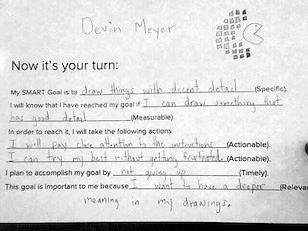 Devin Meyer
Now it's your turn:
My SMART Goal is to draw things with decent detail (Specific).
I will know that I have reached my goal if I can draw something that
has good detail (Measurable).
In order to reach it, I will take the following actions
I will pay close attention to the instructions (Actionable).
I can try my best without getting frustrated. (Actionable).
I plan to accomplish my goal by not giving up (Timely).
This goal is Important to me because I want to have a deeper (Relevan
meaning in my drawings.